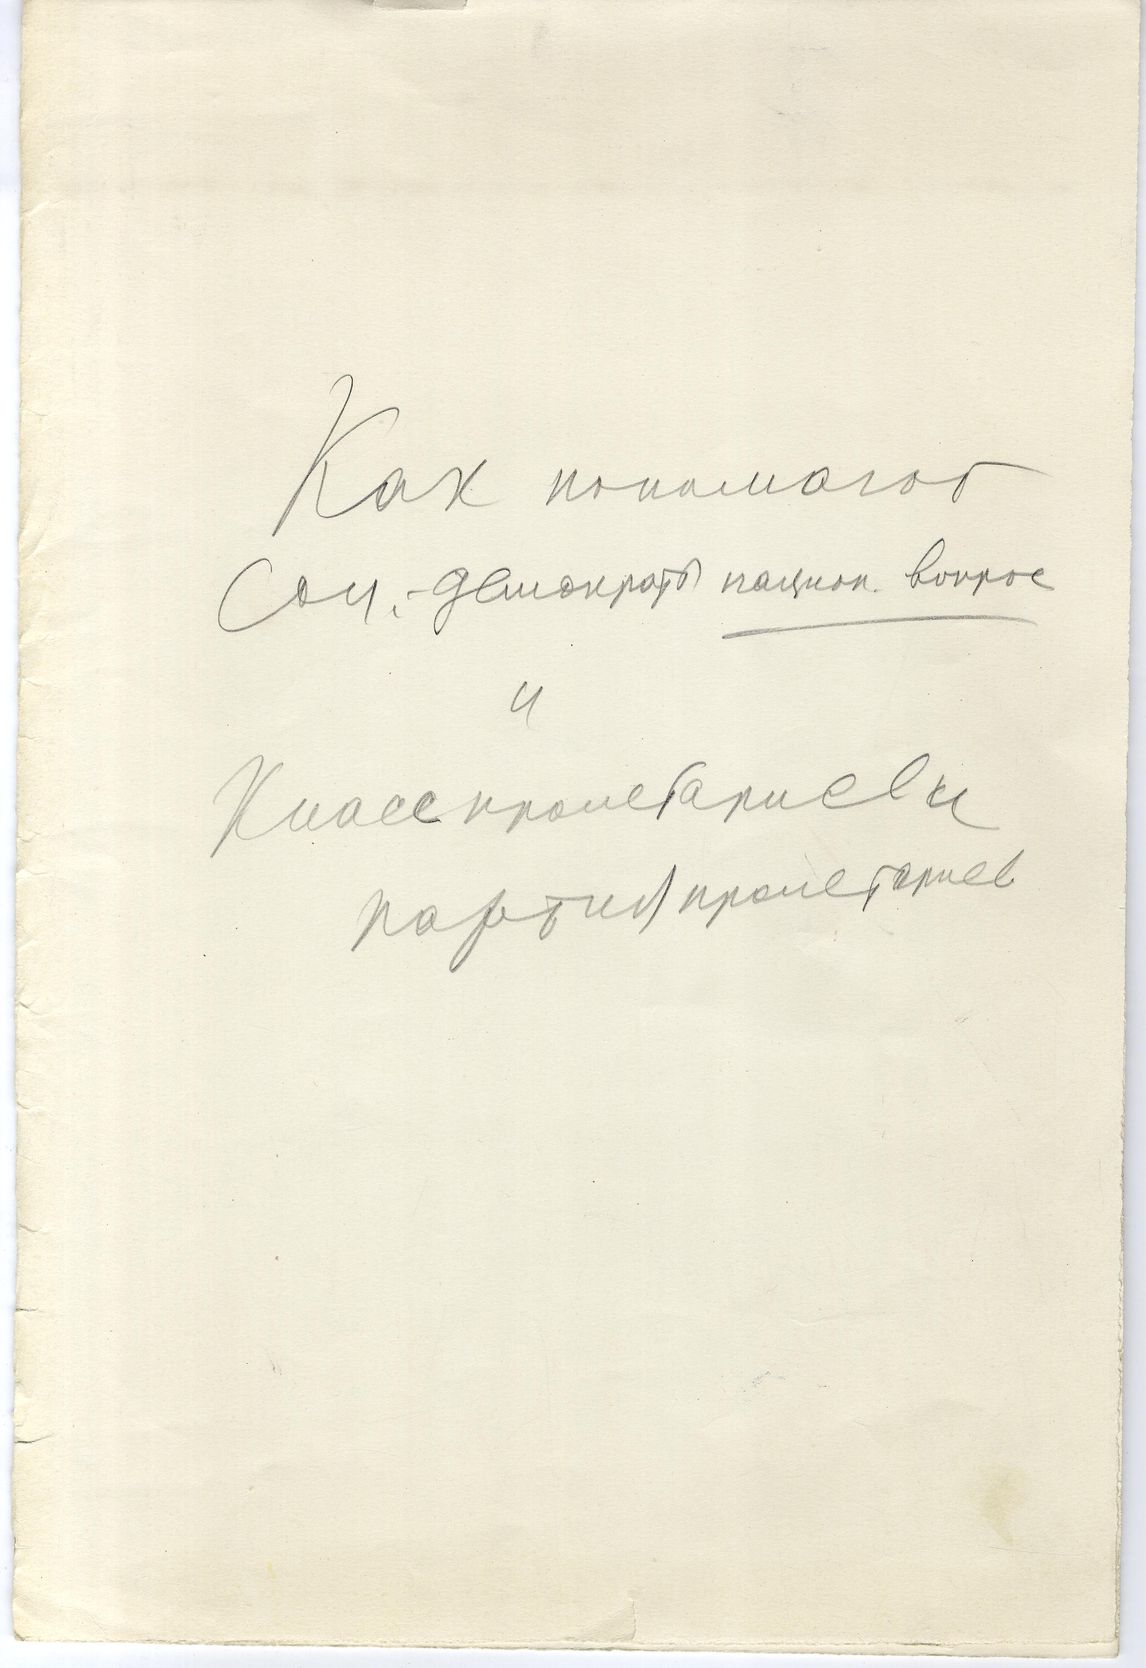 Как понимают
Соц.-демократы национ. вопрос
и
Класс пролетариев и
партия пролетариев